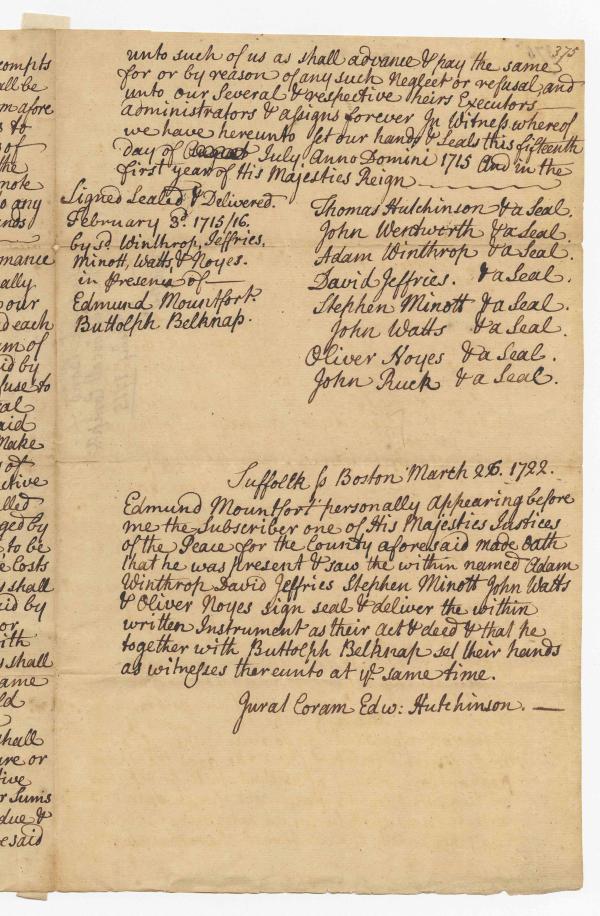 375
compts
all be
m afore
s to
s of
the
note
o any
ands
rmance
ally
our
d each
um of
id by
fuse to
al
aid
Make
of
ctive
lled
ged by
to be
e Costs
s shall
id by
or
ith
s shall
ame
ld
shall
ure or
tive
r Sums
due &
esaid
unto such of us as shall advance & pay the same
for or by reason of any such Neglect or refusal and
unto our Several & respective heirs Executors
administrators & assigns forever In Witness whereof
we have hereunto set our hands & Seals this fifteenth
day of July. Anno Domini 1715 And in the
first year of His Majesties Reign
Signed Sealed & Delivered.
February 3d. 1715/16.
by sd. Winthrop, Jeffries,
Minott, Watts, & Noyes.
in Presence of
Edmund Mountfort.
Buttolph Belknap.
Thomas Hutchinson & a Seal.
John Wentworth & a Seal.
Adam Winthrop & a Seal.
David Jeffries. & a Seal.
Stephen Minott & a Seal.
John Watts & a Seal.
Oliver Noyes & a Seal.
John Ruck & a Seal.
Suffolk ss Boston March 26. 1722.
Edmund Mountfort personally appearing before
me the Subscriber one of His Majesties Justices
of the Peace for the County aforesaid made Oath
that he was present & saw the within named Adam
Winthrop David Jeffries Stephen Minott John Watts
& Oliver Noyes sign seal & deliver the within
written Instrument as their act & deed & that he
together with Buttolph Belknap set their hands
as witnesses thereunto at ye. same time.
Jurat Coram Edw: Hutchinson.